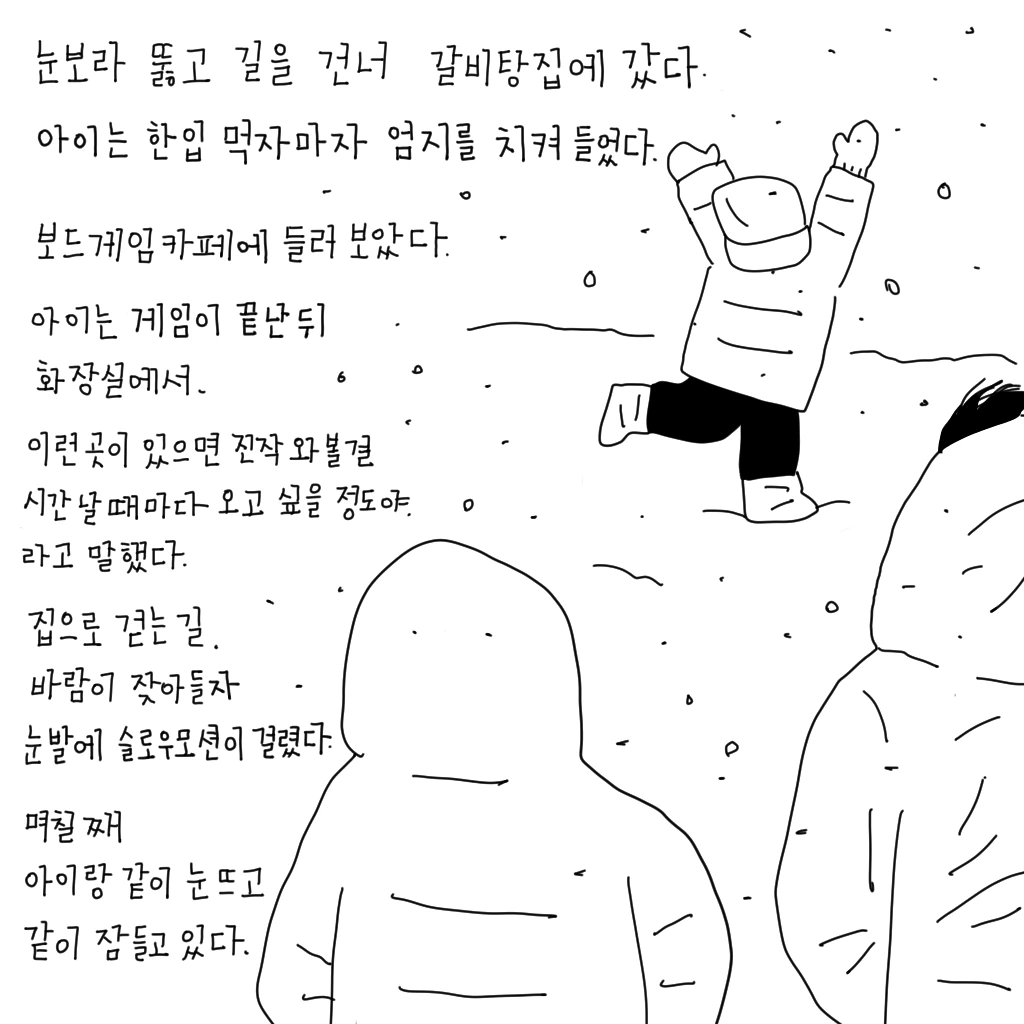 눈보라 뚫고 길을 건너 갈비탕집에 갔다.
아이는 한입 먹자마자 엄지를 치켜 들었다.
보드게임카페에 들러 보았다.
아이는 게임이 끝난 뒤
화장실에서.
이런곳이 있으면 진작 와볼걸
시간 날 때마다 오고 싶을 정도야.
라고 말했다.
집으로 걷는 길.
바람이 잦아들자
눈발에 슬로우모션이 걸렸다.
며칠 째
아이랑 같이 눈 뜨고
같이 잠들고 있다.